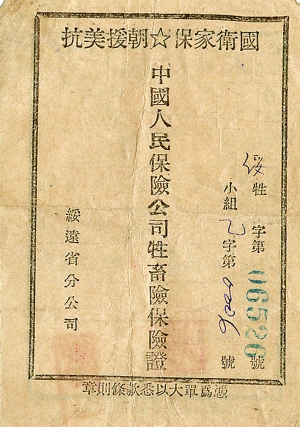 抗美援朝☆保家衛國
綏牲字第06520號
小組乙字第 號
中國人民保險公司牲畜險保險證
綏遠省分公司
章則條款悉以大單爲憑